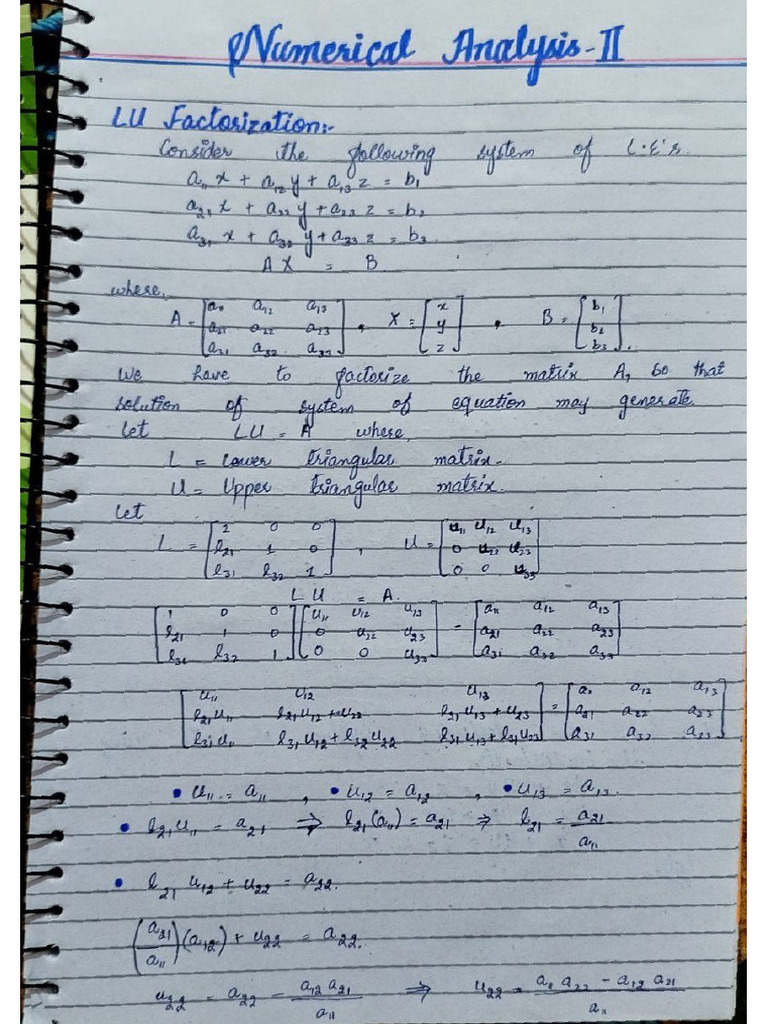 Numerical Analysis-II
LU Factorization:-
Consider the following system of L.E's.
a₁₁x + a₁₂y + a₁₃z = b₁
a₂₁x + a₂₂y + a₂₃z = b₂
a₃₁x + a₃₂y + a₃₃z = b₃.
AX = B
where,
A = [a₁₁ a₁₂ a₁₃; a₂₁ a₂₂ a₂₃; a₃₁ a₃₂ a₃₃], X = [x; y; z], B = [b₁; b₂; b₃].
We have to factorize the matrix A, so that
solution of system of equation may generate.
Let LU = A where,
L = Lower triangular matrix.
U = Upper triangular matrix.
Let
L = [1 0 0; l₂₁ 1 0; l₃₁ l₃₂ 1], U = [u₁₁ u₁₂ u₁₃; 0 u₂₂ u₂₃; 0 0 u₃₃]
LU = A.
[1 0 0; l₂₁ 1 0; l₃₁ l₃₂ 1] [u₁₁ u₁₂ u₁₃; 0 u₂₂ u₂₃; 0 0 u₃₃] = [a₁₁ a₁₂ a₁₃; a₂₁ a₂₂ a₂₃; a₃₁ a₃₂ a₃₃]
[u₁₁ u₁₂ u₁₃; l₂₁u₁₁ l₂₁u₁₂+u₂₂ l₂₁u₁₃+u₂₃; l₃₁u₁₁ l₃₁u₁₂+l₃₂u₂₂ l₃₁u₁₃+l₃₁u₂₃] = [a₁₁ a₁₂ a₁₃; a₂₁ a₂₂ a₂₃; a₃₁ a₃₂ a₃₃]
• u₁₁ = a₁₁ , • u₁₂ = a₁₂ , • u₁₃ = a₁₃.
• l₂₁u₁₁ = a₂₁ ⇒ l₂₁(a₁₁) = a₂₁ ⇒ l₂₁ = a₂₁/a₁₁
• l₂₁ u₁₂ + u₂₂ = a₂₂.
(a₂₁/a₁₁)(a₁₂) + u₂₂ = a₂₂.
u₂₂ = a₂₂ - a₁₂a₂₁/a₁₁ ⇒ u₂₂ = a₁₁a₂₂ - a₁₂a₂₁/a₁₁